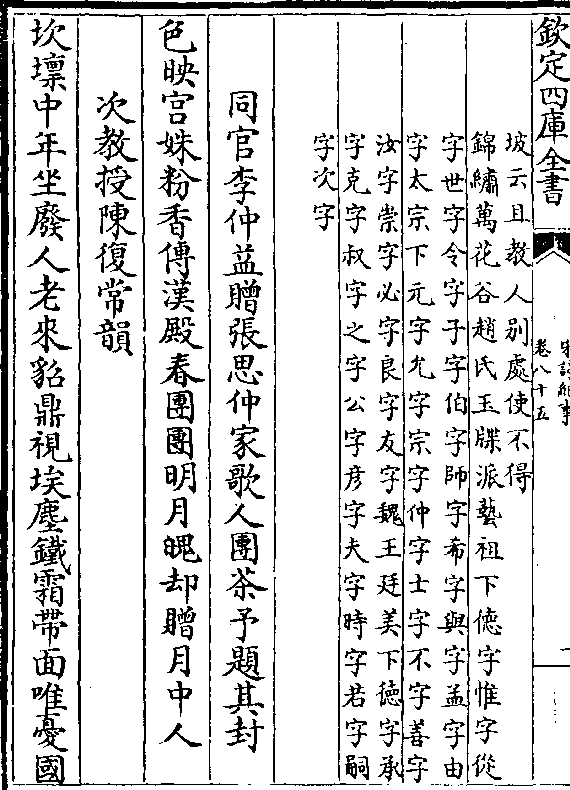 欽定四庫全書
宋詩紀事
卷八十五
坡云且教人别處使不得
錦繡萬花谷趙氏玉牒派藝祖下德字惟字從
字世字令字子字伯字師字希字與字孟字由
字太宗下元字允字宗字仲字士字不字善字
汝字崇字必字良字友字魏王廷美下德字承
字克字叔字之字公字彦字夫字時字若字嗣
字次字
同官李仲益贈張思仲家歌人團茶予題其封
色映宫姝粉香傳漢殿春團團明月䰟却贈月中人
次教授陳復常韻
坎壈中年坐廢人老來貂鼎視埃塵鐵霜帶面唯憂國